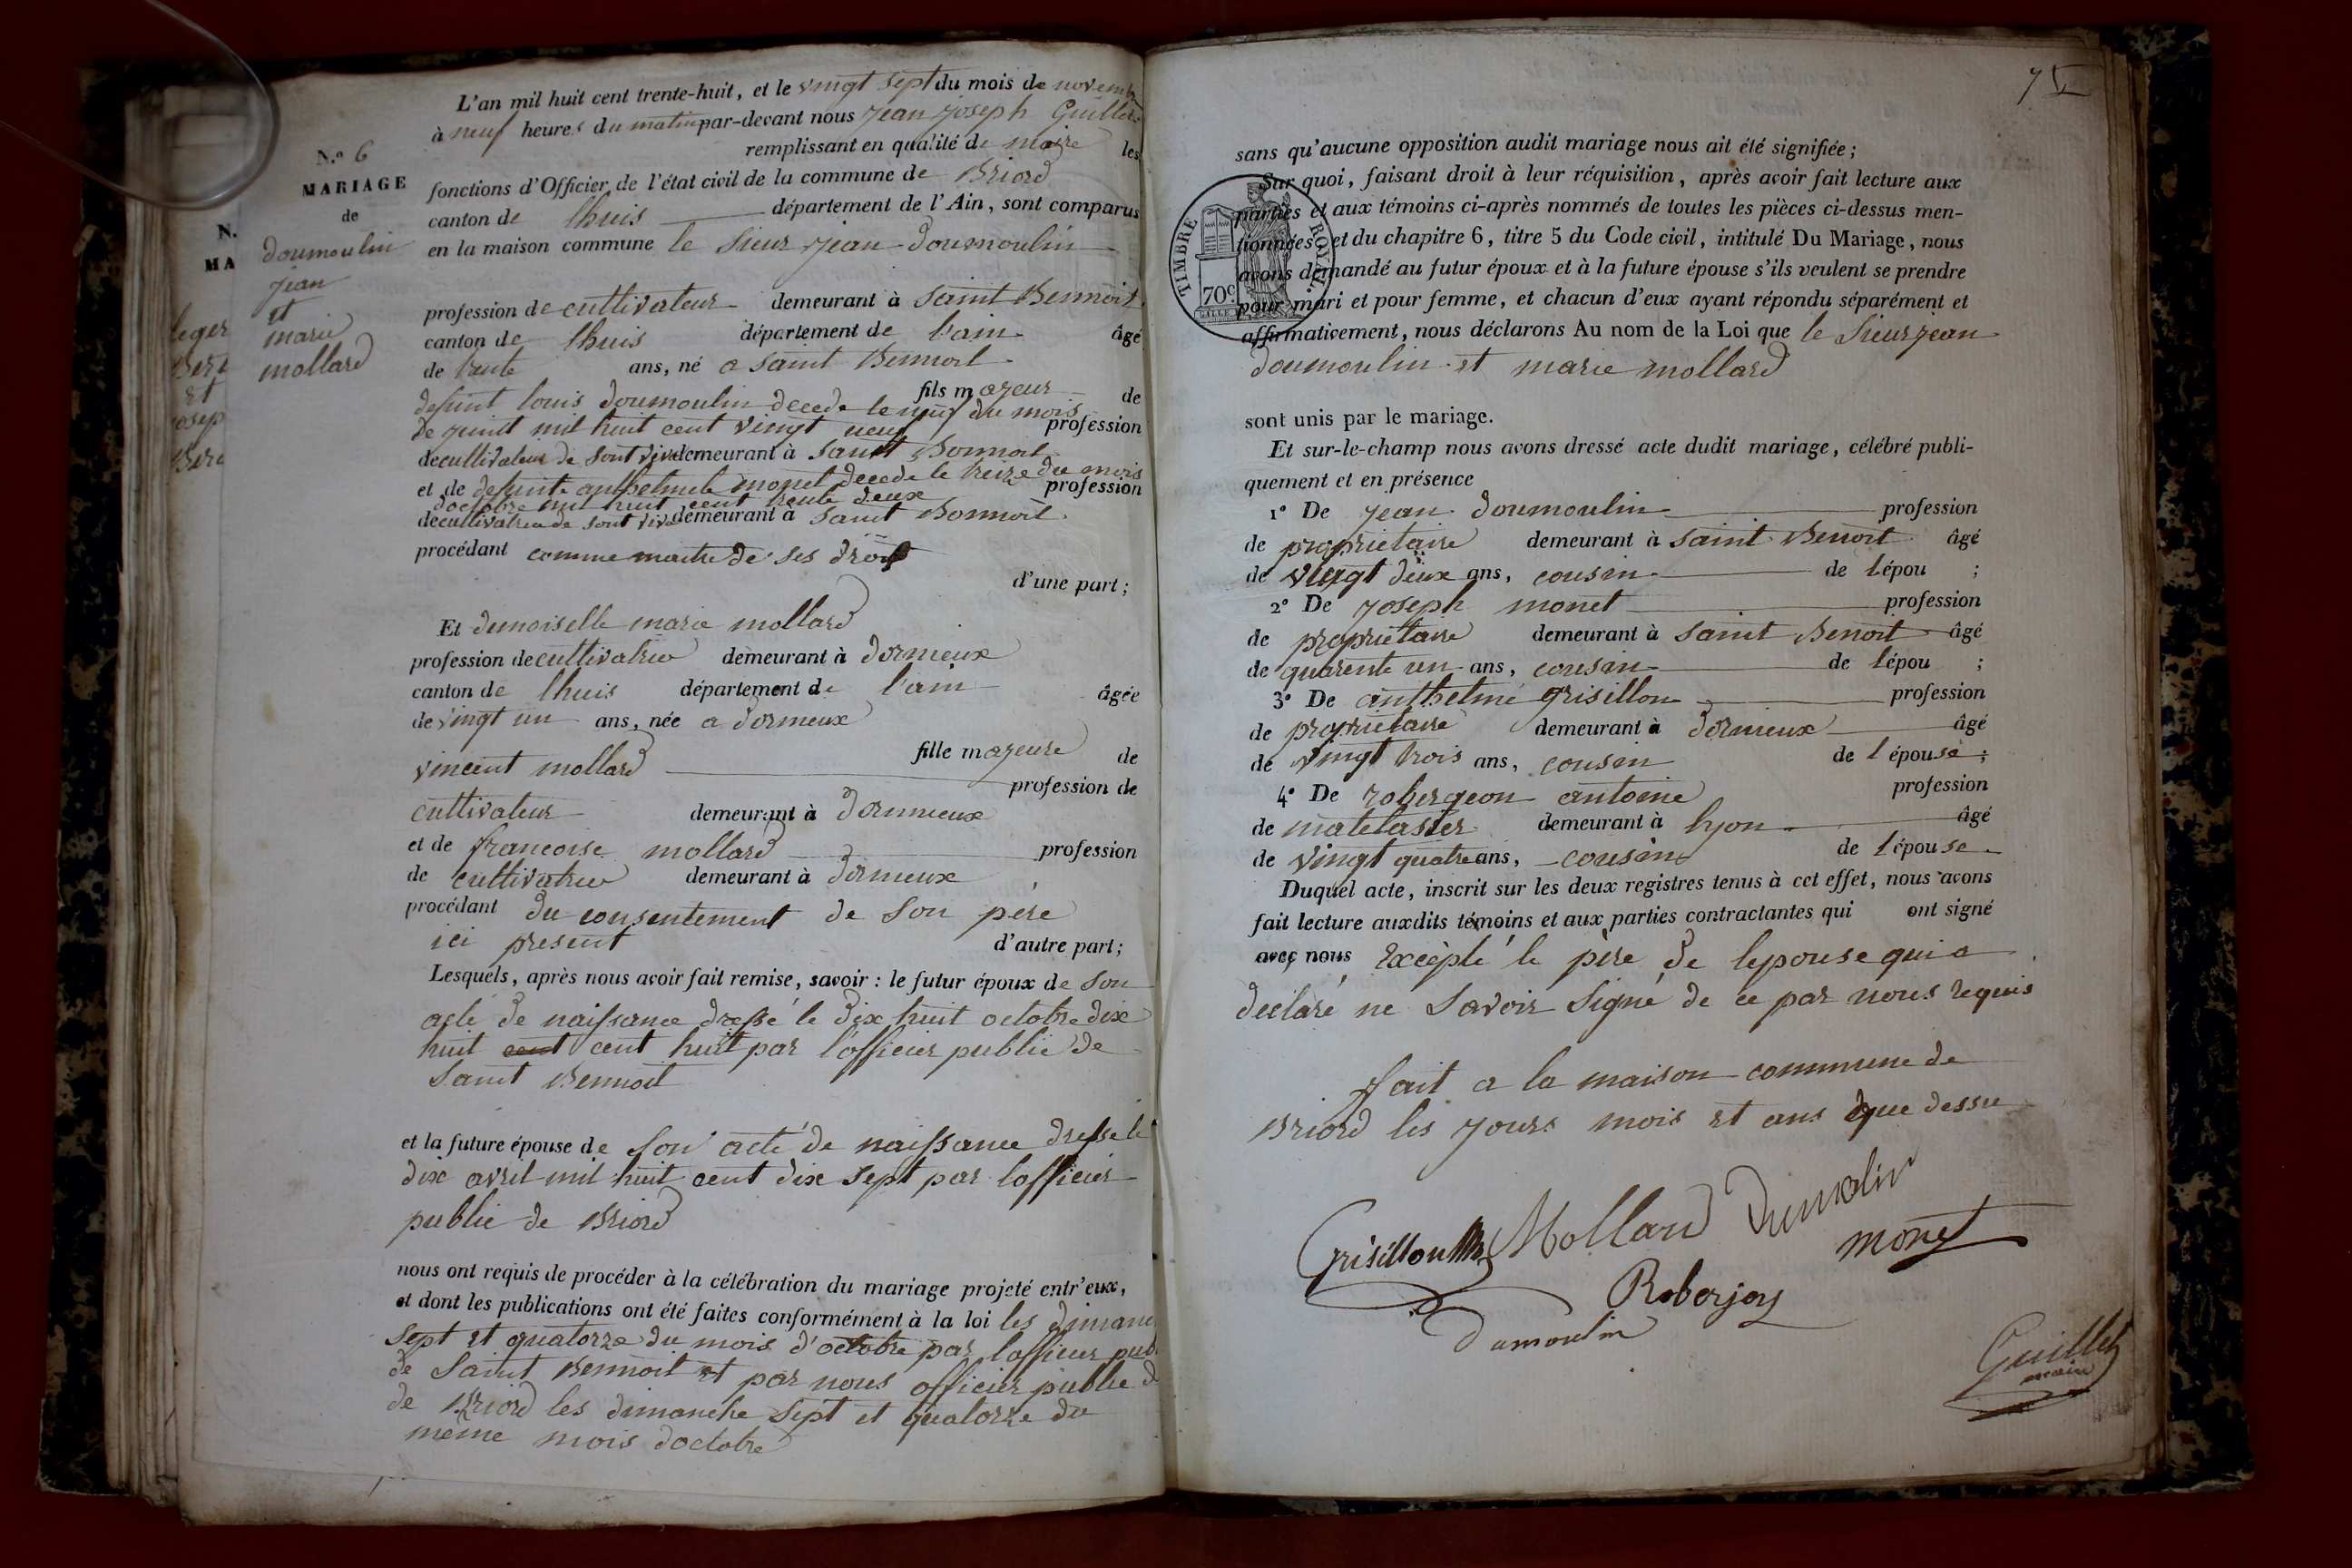 N.
MA
leger
Bere
et
josep
Bere
N.º 6
MARIAGE
de
doumoulin
jean
et
marie
mollard
L'an mil huit cent trente-huit, et le vingt sept du mois de novemb
à neuf heures du matin par-devant nous jean joseph Guillet
remplissant en qualité de maire les
fonctions d'Officier de l'état civil de la commune de Briord
canton de lhuis département de l'Ain, sont comparus
en la maison commune le sieur jean doumoulin
profession de cultivateur demeurant à saint Bennoit
canton de lhuis département de l'ain âgé
de trente ans, né a saint Bennoit
fils mageur de
defunt louis doumoulin decede le neuf du mois
de juint mil huit cent vingt neuf profession
de cultivateur de sont viv demeurant à saint Bonnoit
et de defunte anthelmete monet decede le treize du mois
d'octobre mil huit cent trente deux profession
de cultivatrice de sont viv demeurant à saint Bonnoit
procédant comme maitre de ses droit
d'une part;
Et demoiselle marie mollard
profession de cultivatrice demeurant à dormieux
canton de lhuis département de l'ain âgée
de vingt un ans, née a dormieux
fille mageure de
vincent mollard profession de
cultivateur demeurant à dormieux
et de francoise mollard profession
de cultivatrice demeurant à dormieux
procédant du consentement de son pére
ici present d'autre part;
Lesquels, après nous avoir fait remise, savoir : le futur époux de son
acte de naissance dressé le dix huit octobre dix
huit cent cent huit par l'officier public de
saint Bennoit
et la future épouse de son acte de naissance dressé le
dix avril mil huit cent dix sept par l'officier
public de Briord
nous ont requis de procéder à la célébration du mariage projeté entr'eux,
et dont les publications ont été faites conformément à la loi les dimanc
sept et quatorze du mois d'octobre par l'officier pub
de saint Bennoit et par nous officier public d
de Briord les dimanche sept et quatorze du
même mois d'octobre
75
TIMBRE ROYAL.
70c
sans qu'aucune opposition audit mariage nous ait été signifiée;
Sur quoi, faisant droit à leur réquisition, après avoir fait lecture aux
parties et aux témoins ci-après nommés de toutes les pièces ci-dessus men-
tionnées, et du chapitre 6, titre 5 du Code civil, intitulé Du Mariage, nous
avons demandé au futur époux et à la future épouse s'ils veulent se prendre
pour mari et pour femme, et chacun d'eux ayant répondu séparément et
affirmativement, nous déclarons Au nom de la Loi que le sieur jean
doumoulin et marie mollard
sont unis par le mariage.
Et sur-le-champ nous avons dressé acte dudit mariage, célébré publi-
quement et en présence
1º De jean doumoulin profession
de proprietaire demeurant à saint Benoit âgé
de vingt deux ans, cousin de lépou ;
2º De joseph monet profession
de proprietaire demeurant à saint Benoit âgé
de quarente un ans, cousin de lépou ;
3º De anthelme grisillon profession
de proprietaire demeurant à dormieux âgé
de vingt trois ans, cousin de l épouse ;
4º De robergeon antoine profession
de matelassier demeurant à lyon âgé
de vingt quatre ans, cousin de l épouse
Duquel acte, inscrit sur les deux registres tenus à cet effet, nous avons
fait lecture auxdits témoins et aux parties contractantes qui ont signé
avec nous Excèpté le père de lepouse qui a
declaré ne savoir signé de ce par nous requis
fait a la maison commune de
Briord les jours mois et ans que dessu
Grisillon Mollard Dumolin
monet
Roberjon
Dumoulin
Guillet
maire